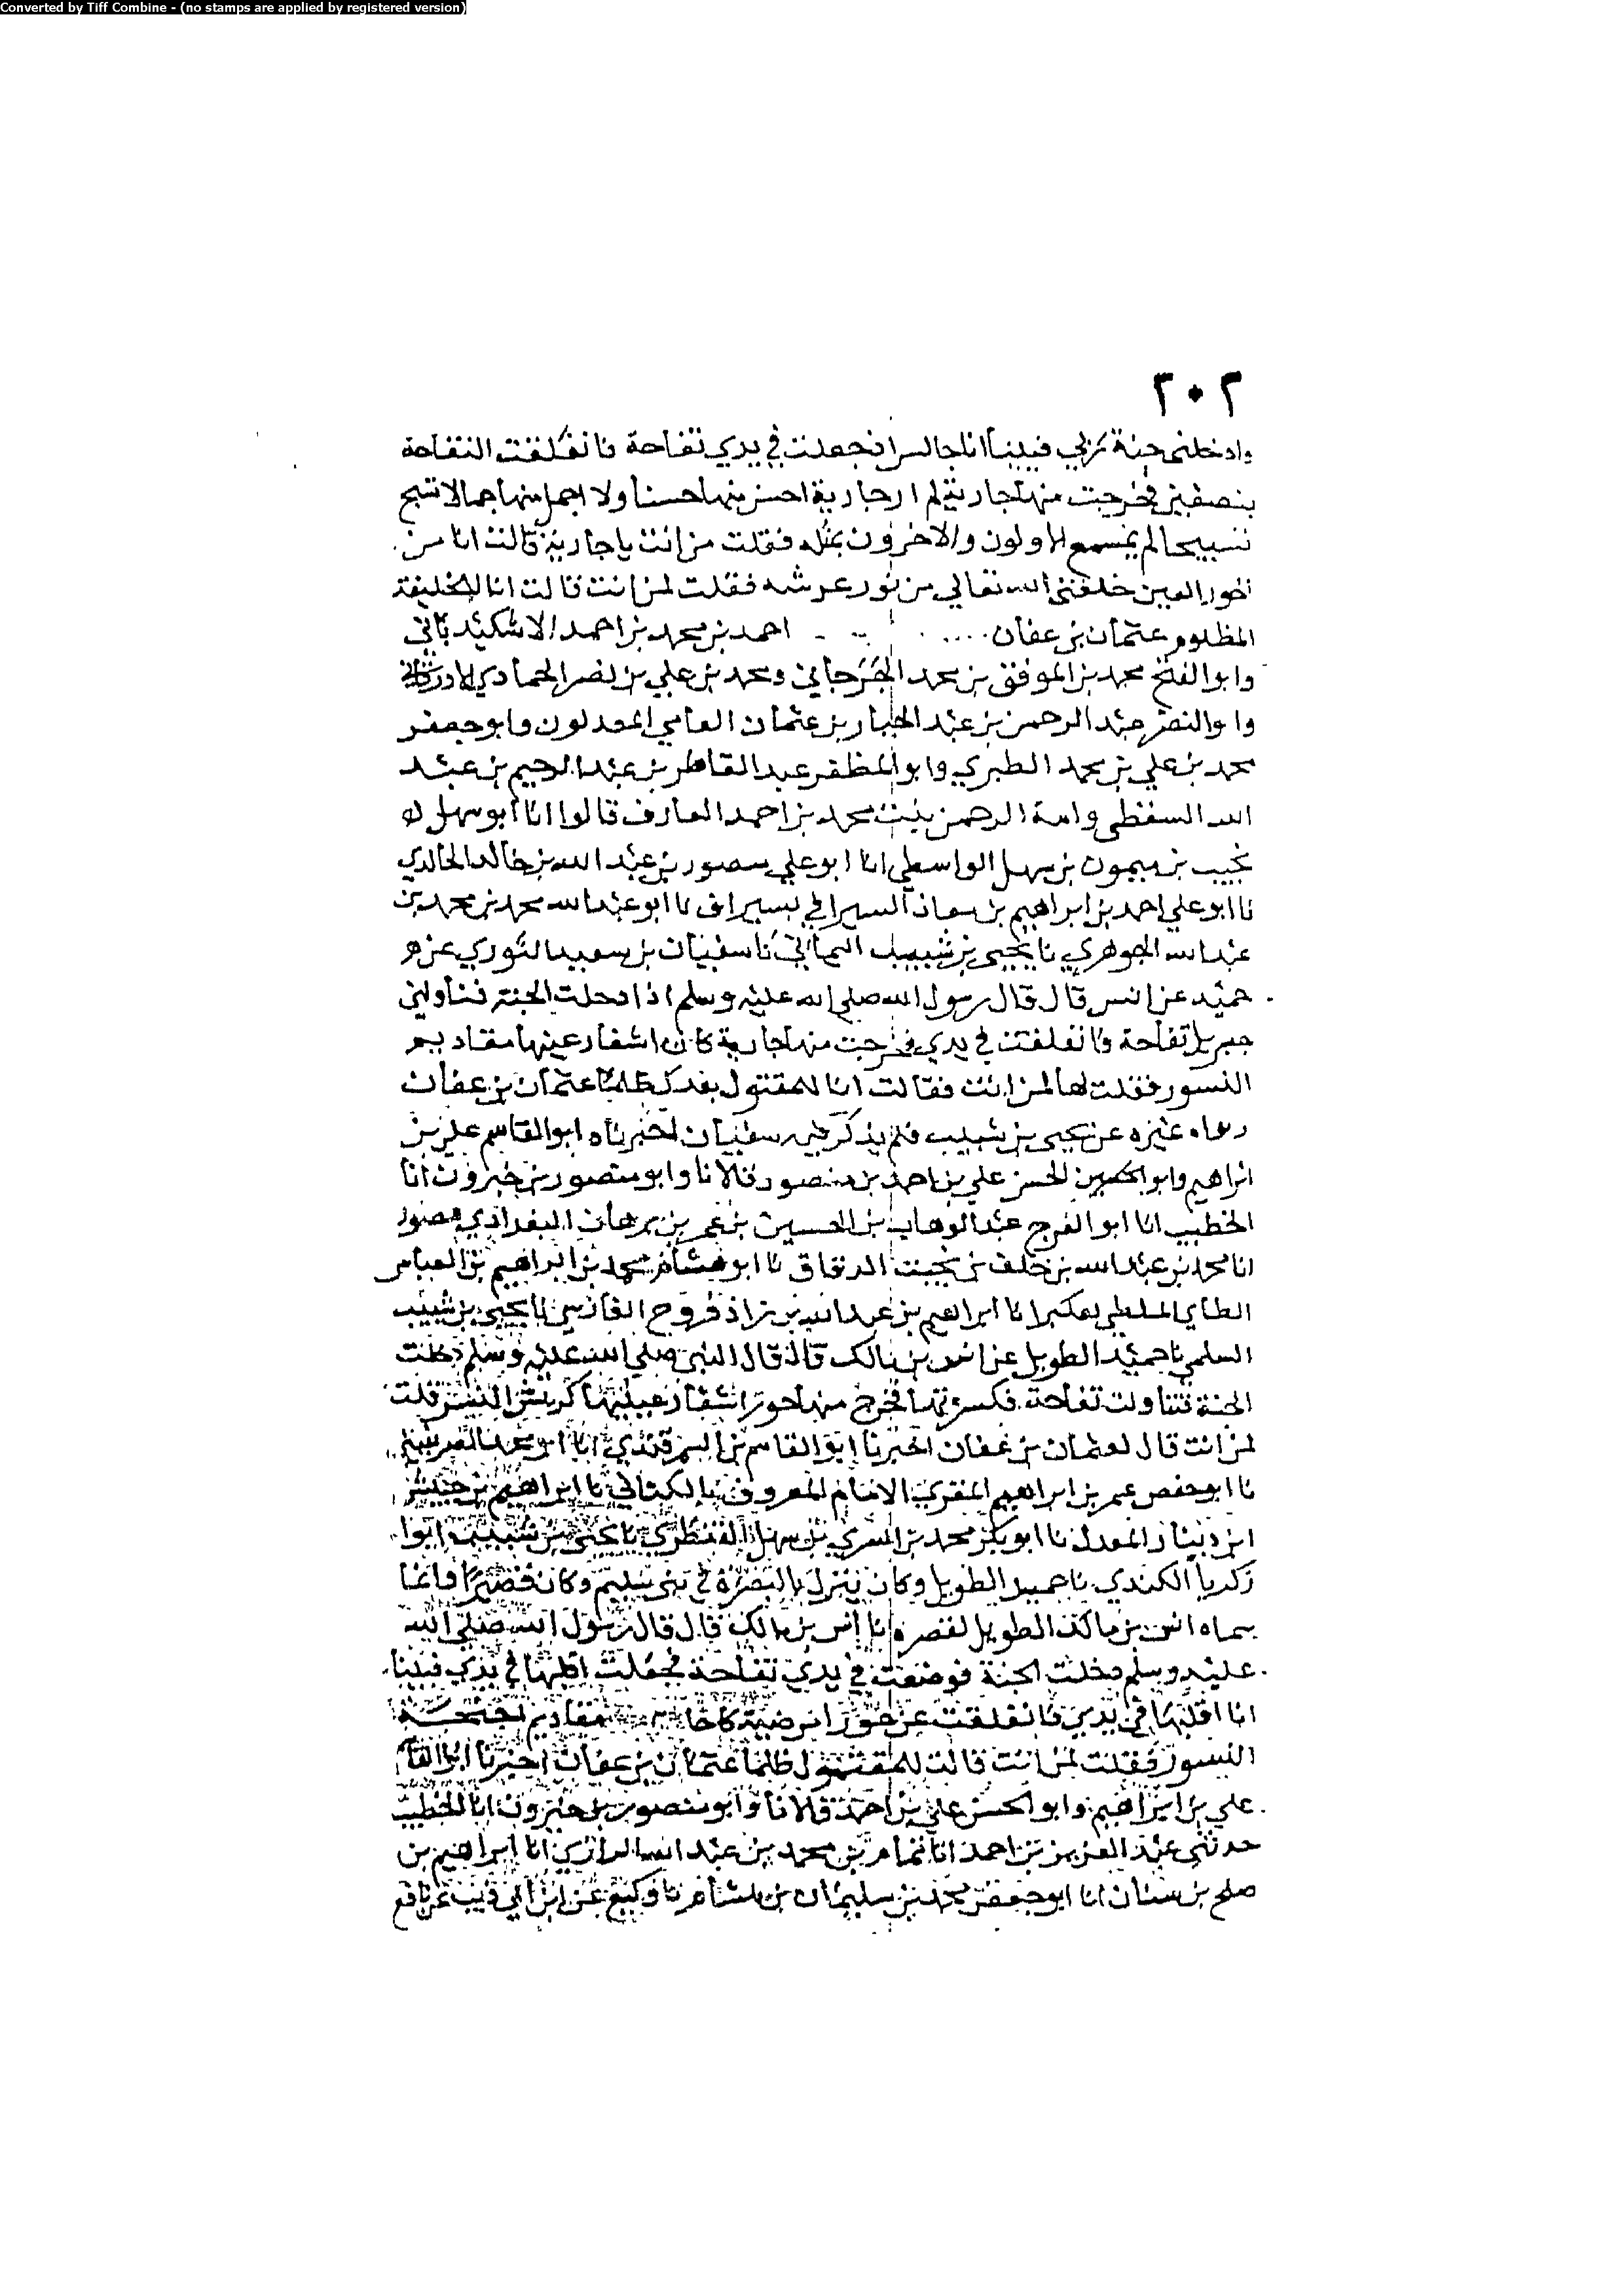 Converted by Tiff Combine - (no stamps are applied by registered version)
٢٠٢
وادخلني جنة ربي فبينا انا جالس اذ جعلت في يدي تفاحة فانفلقت التفاحة
بنصفين فخرجت منها جارية لم ار جارية احسن منها حسنا ولا اجمل منها جمالا تسبح
تسبيحا لم يسمع الاولون والاخرون بمثله فقلت من انت يا جارية قالت انا من
الحور العين خلقني الله تعالي من نور عرشه فقلت لمن انت قالت انا للخليفة
المظلوم عثمان بن عفان احمد بن محمد بن احمد
وابو الفتح محمد بن الموفق بن محمد الجرجاني ومحمد بن علي بن نصر الحمادي
وابو النصر عبد الرحمن بن عبد الجبار بن عثمان العامي المعدلون وابو جعفر
محمد بن علي بن محمد الطبري وابو المظفر عبد القاطر بن عبد الرحيم بن عبد
الله السقطي وامة الرحمن بنت محمد بن احمد العارف قالوا انا ابو سهل
نجيب بن ميمون بن سهل الواسطي انا ابو علي منصور بن عبد الله بن خالد الخالدي
نا ابو علي احمد بن ابراهيم بن معاذ السيرافي بسيراف نا ابو عبد الله محمد بن محمد بن
عبد الله الجوهري نا يحيى بن شبيب اليماني نا سفيان بن سعيد الثوري عن
حميد عن انس قال قال رسول الله صلى الله عليه وسلم اذا دخلت الجنة فناولني
جبريل تفاحة فانفلقت في يدي فخرجت منها جارية كان اشفار عينها مقاديم
النسور فقلت لها لمن انت فقالت انا للمقتول بعدك ظلما عثمان بن عفان
رواه غيره عن يحيى بن شبيب فلم يذكر فيه سفيان اخبرناه ابو القاسم علي بن
ابراهيم وابو الحسن علي بن احمد بن منصور قالا نا وابو منصور بن خيرون انا
الخطيب انا ابو الفرج عبد الوهاب بن الحسين بن عمر بن برهان البغدادي بصور
انا محمد بن عبد الله بن خلف بن بخيت الدقاق نا ابو هشام محمد بن ابراهيم بن العباس
الطاي الملطي بعكبرا نا ابراهيم بن عبد الله بن زاذ فروخ الفارسي نا يحيى بن شبيب
السلمي نا حميد الطويل عن انس بن مالك قال قال النبي صلى الله عليه وسلم دخلت
الجنة فتناولت تفاحة فكسرتها فخرج منها حورا اشفار عينيها كريش النسر قلت
لمن انت قال لعثمان بن عفان اخبرنا ابو القاسم بن السمرقندي انا ابو محمد الصريفيني
نا ابو حفص عمر بن ابراهيم المقري الامام المعروف بالكتاني نا ابراهيم بن حنيش
ابن دينار المعدل نا ابو بكر محمد بن السري بن سهل القنطري نا يحيى بن شبيب ابوا
زكريا الكندي نا حميد الطويل وكان ينزل بالبصرة في بني سليم وكان قصيرا وانما
سماه انس بن مالك الطويل لقصره نا انس بن مالك قال قال رسول الله صلى الله
عليه وسلم دخلت الجنة فوضعت في يدي تفاحة فجعلت اقلبها في يدي فبينا
انا اقلبها في يدي فانفلقت عن حورا مرضية كانها مقاديم اجنحة
النسور فقلت لمن انت قالت للمقتول ظلما عثمان بن عفان اخبرنا ابو القاسم
علي بن ابراهيم وابو الحسن علي بن احمد قالا نا وابو منصور بن خيرون انا الخطيب
حدثني عبد العزيز بن احمد انا تمام بن محمد بن عبد الله الرازي انا ابراهيم بن
صلح بن سنان انا ابو جعفر محمد بن سليمان بن هشام نا وكيع عن ابن ابي ذيب عن نافع